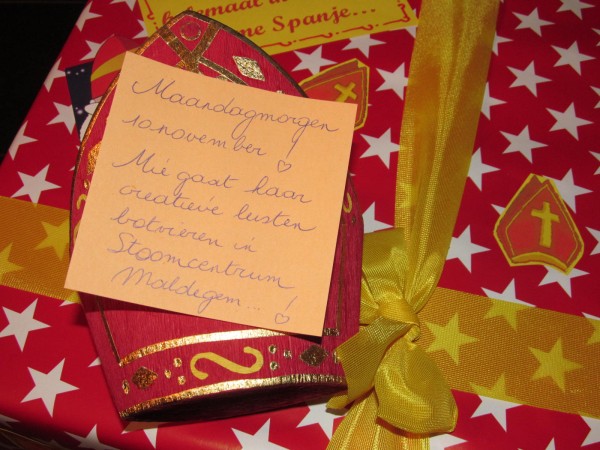 helemaal
me Spanje...
Maandagmorgen
10 november! ♡
Mie gaat haar
creatieve lusten
botvieren in
Stoomcentrum
Maldegem...! ♡